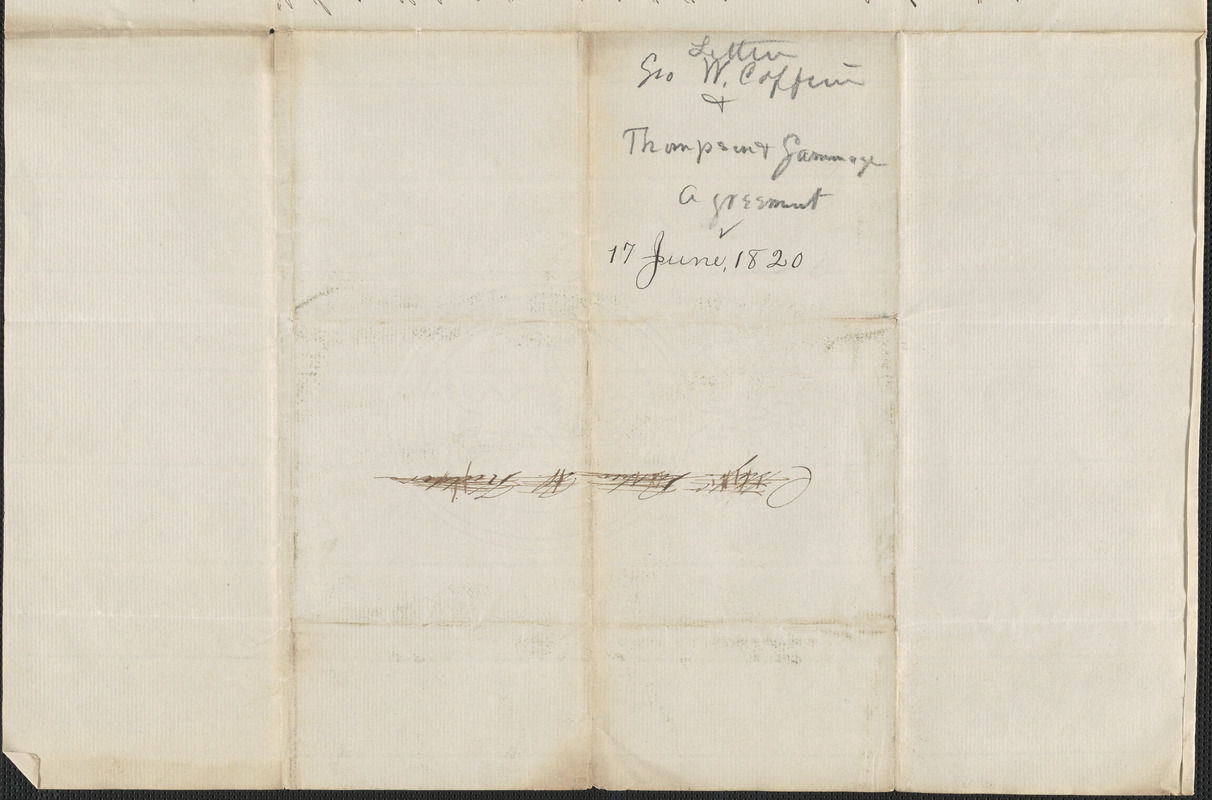 Letter
Geo W. Coffin
&
Thompson & Gammage
Agreement
17 June, 1820